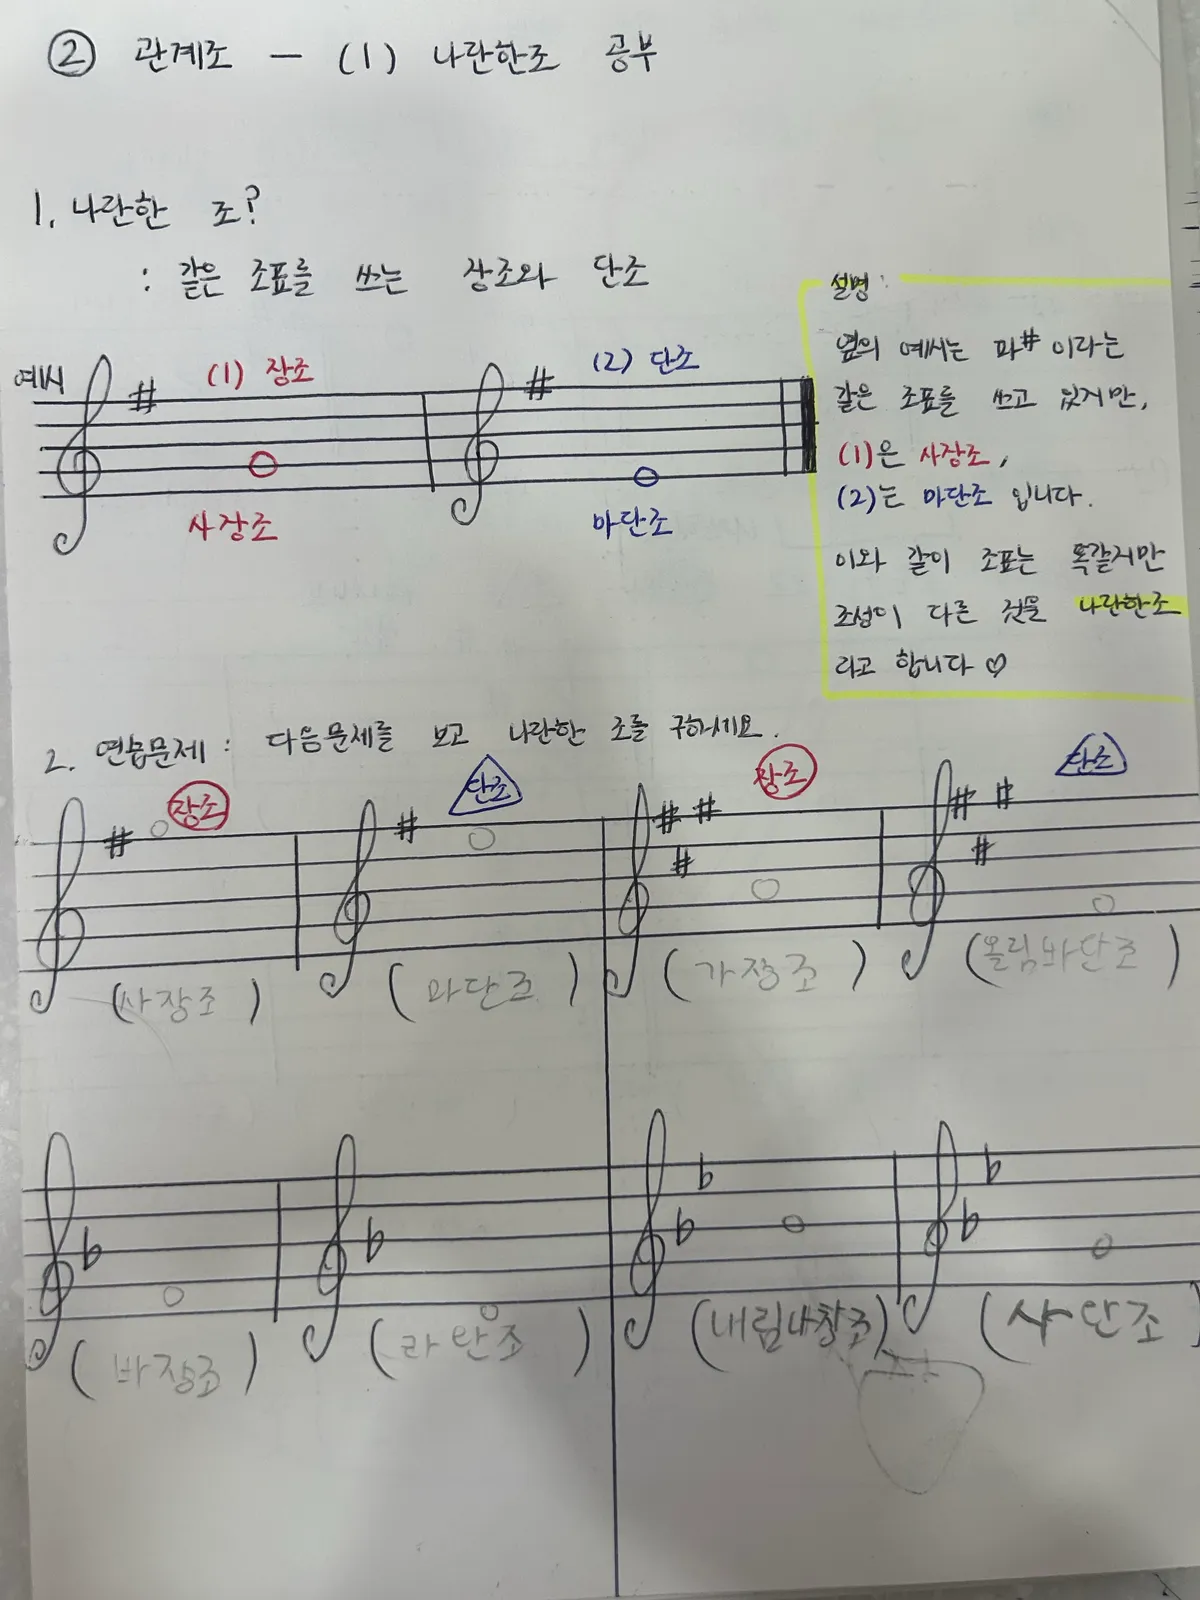 ② 관계조 - (1) 나란한조 공부
1. 나란한 조?
: 같은 조표를 쓰는 장조와 단조
예시
(1) 장조
(2) 단조
사장조
마단조
설명:
옆의 예시는 파# 이라는
같은 조표를 쓰고 있지만,
(1)은 사장조,
(2)는 마단조 입니다.
이와 같이 조표는 똑같지만
조성이 다른 것을 나란한조
라고 합니다 ♡
2. 연습문제 : 다음문제를 보고 나란한 조를 구하세요.
장조
단조
장조
단조
(사장조)
(마단조)
(가장조)
(올림바단조)
(바장조)
(라단조)
(내림나장조)
(사단조)
장